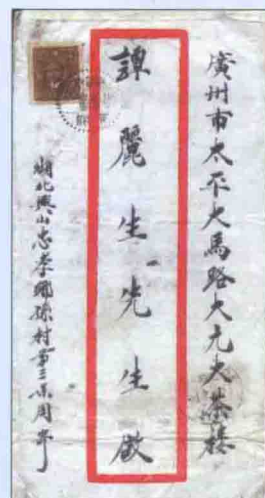 廣州市太平大馬路大元大茶樓
譚麗生先生啟
湖北興山忠孝鄉孫村第三保周寄